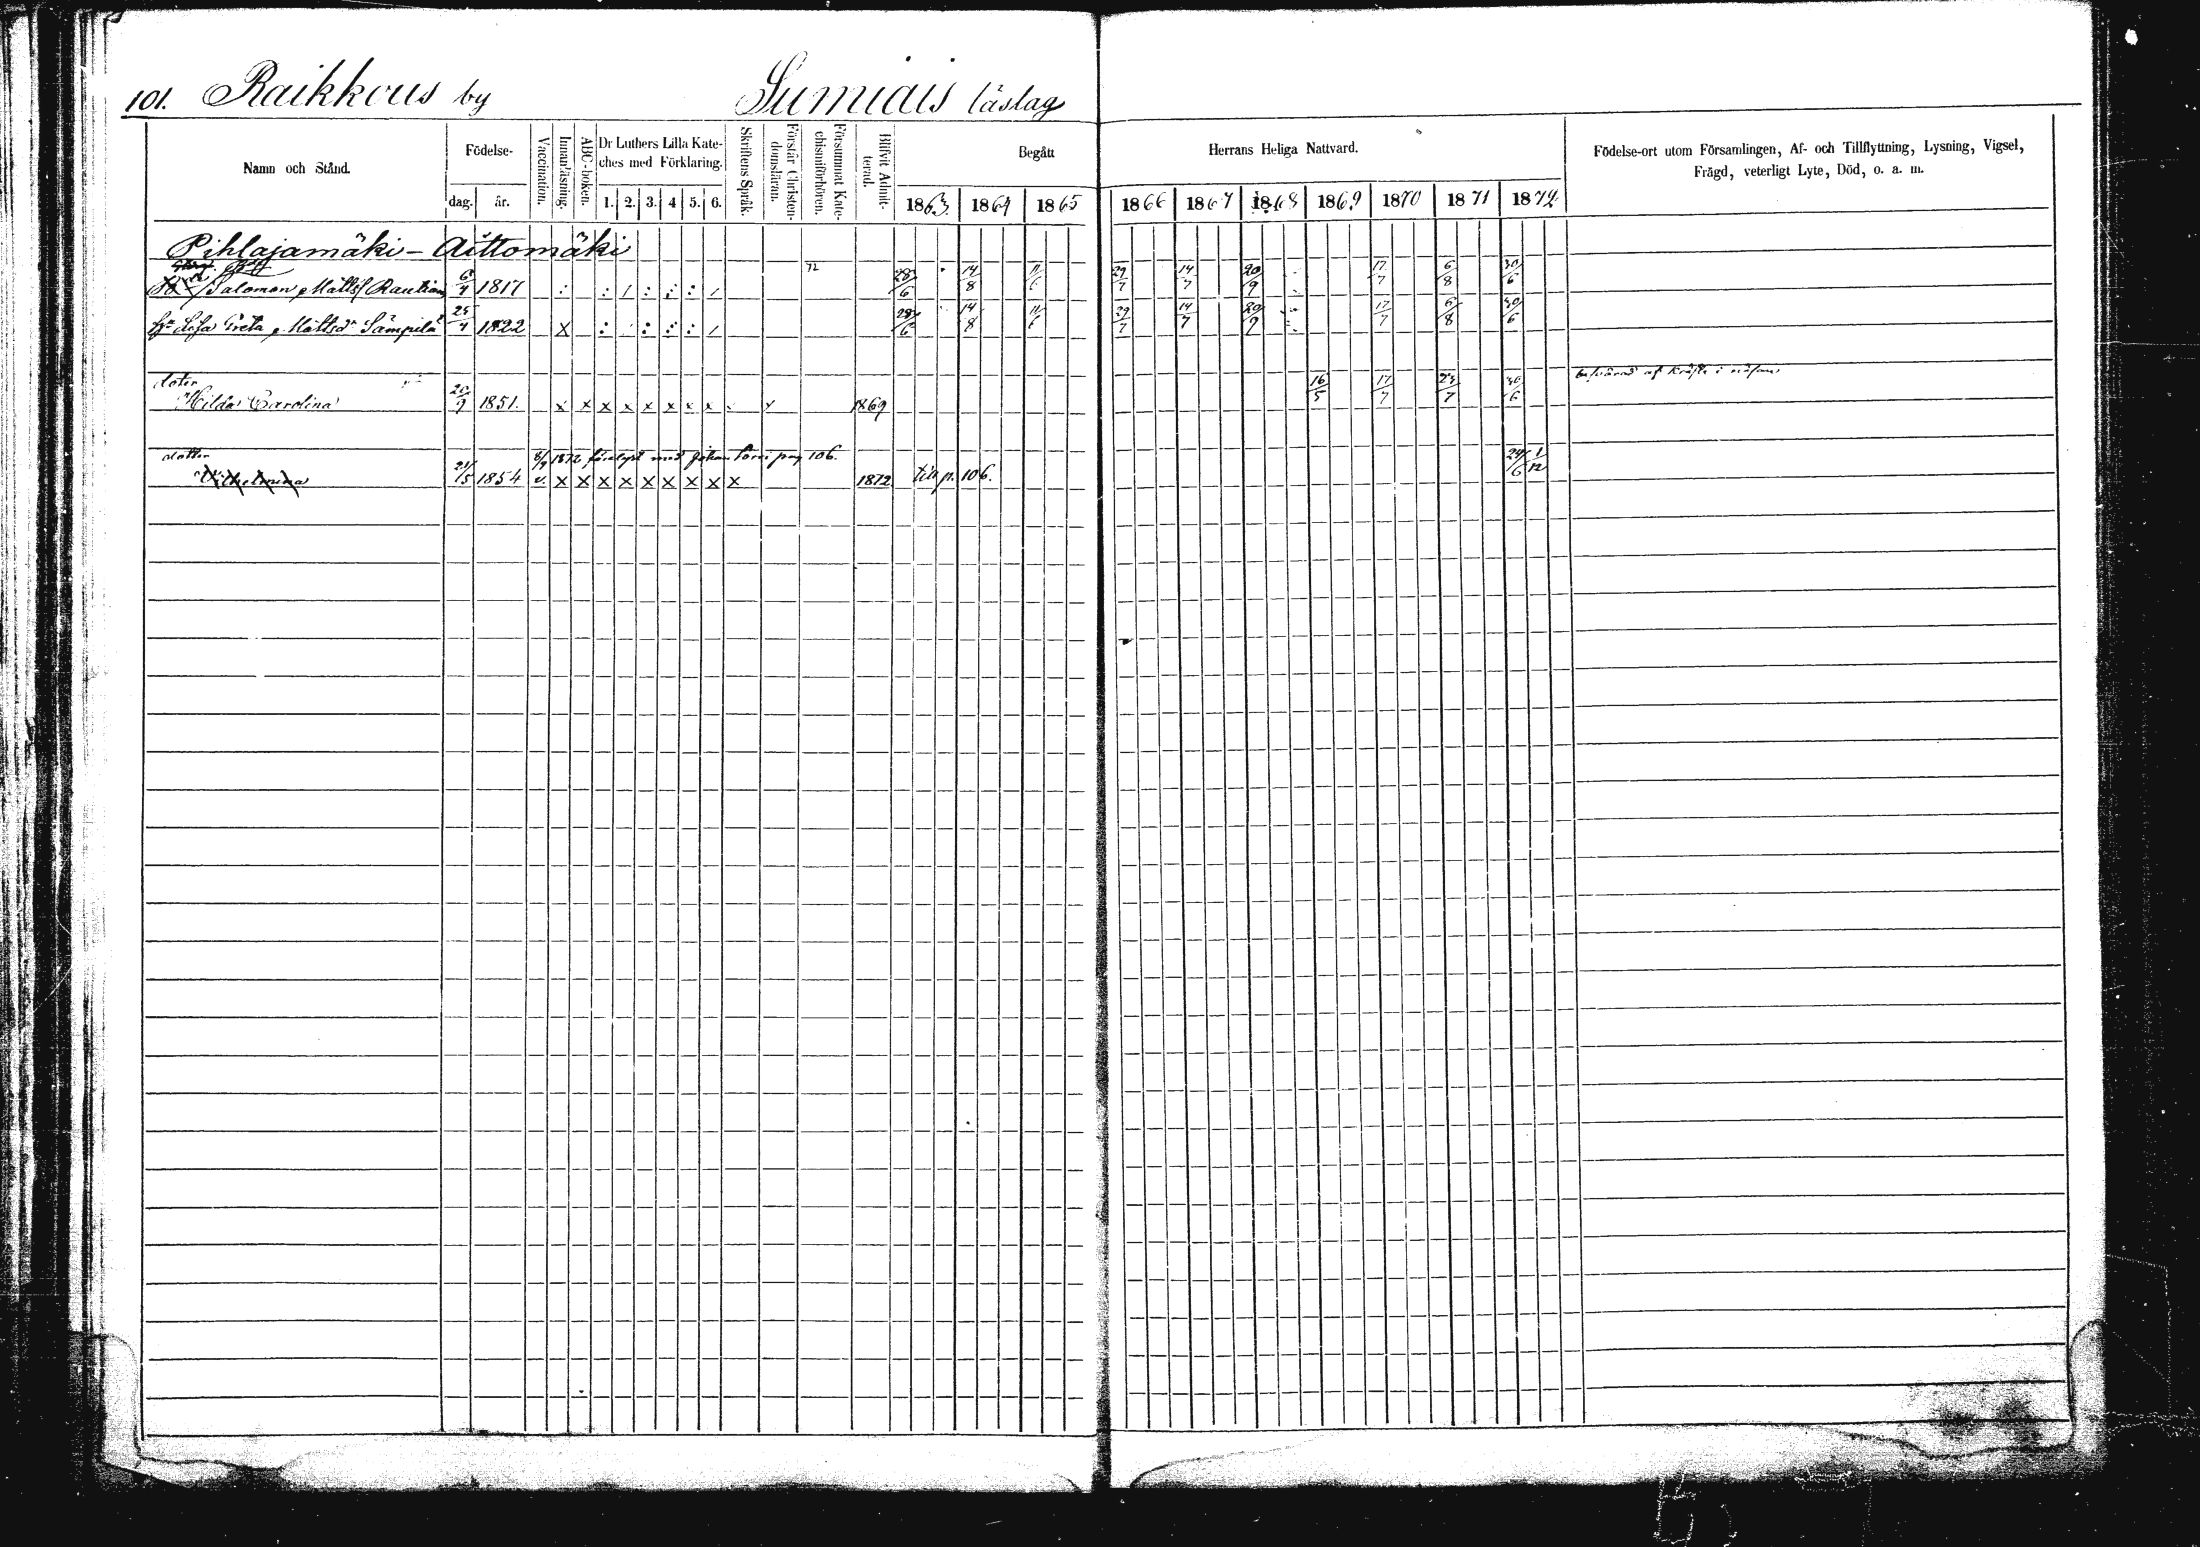 101. Raikkous by Sumiais läslag
Namn och Stånd. Födelse- dag. år. Vaccination. Innanläsning. ABC-boken. Dr Luthers Lilla Kateches med Förklaring. 1. 2. 3. 4 5. 6. Skriftens Språk. Förstår Christendomsläran. Försummat Katechismiförhören. Blifvit Admitterad. Begått Herrans Heliga Nattvard. Födelse-ort utom Församlingen, Af- och Tillflyttning, Lysning, Vigsel, Frägd, veterligt Lyte, Död, o. a. m.
1863. 1864 1865 1866 1867 1868 1869 1870 1871 1872
Pihlajamäki - Aittomäki
72
Salomon Mattss Rautiain 6/4 1817 28/6 14/8 11/6 29/7 14/7 20/9 17/7 6/8 30/6
Lisa Greta Mattsdr Sämpilä 25/4 1822 X 28/6 14/8 11/6 29/7 14/7 20/9 17/7 6/8 30/6
doter
Hilda Carolina 20/9 1851. x x x x x x x x 1869 16/5 17/7 23/7 30/6 besvärad af kräfta i näsan
dotter 8/9 1872 förelyst med Johan pag 106.
Wilhelmina 21/5 1854 v. x x x x x x x x x 1872 till p. 106. 24/6 1/12